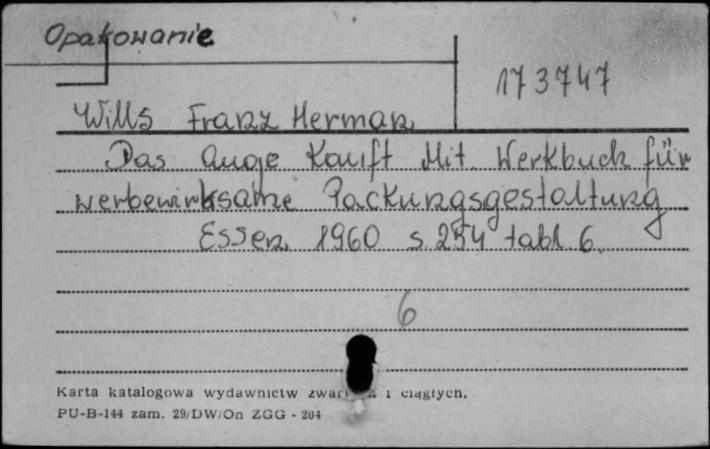 Opakowanie
173747
Wills Franz Herman
Das Auge Kauft Mit Werkbuch für
werbewirksame Packungsgestaltung
Essen 1960 s. 254 tabl 6.
6
Karta katalogowa wydawnictw i ciągłych.
PU-B-144 zam. 29/DW/On ZGG - 204